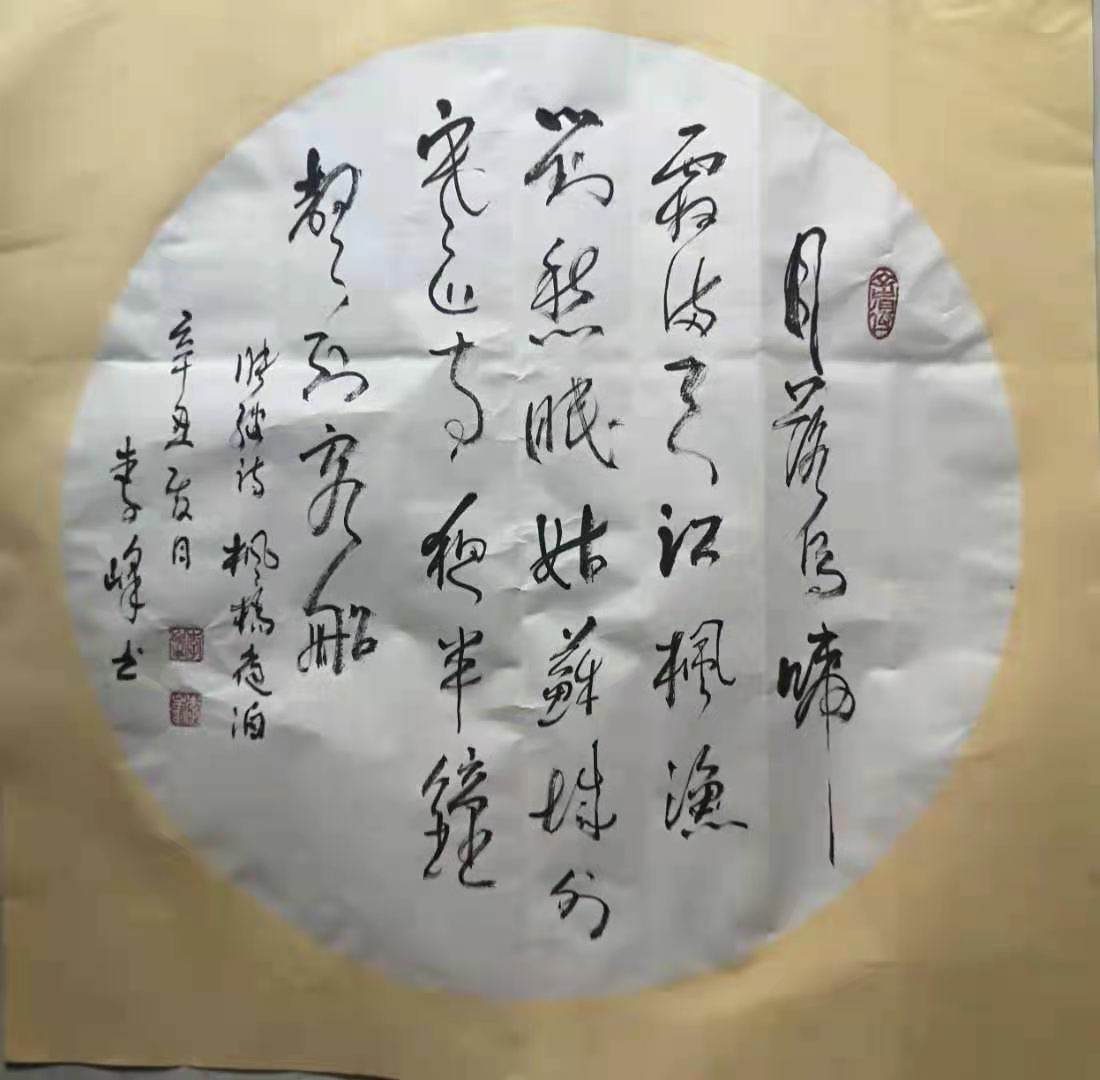 月落烏啼
霜満天江楓漁
對愁眠姑蘇城外
寒山寺夜半鐘
聲到客船
張継詩楓橋夜泊
辛丑夏月
李峰书